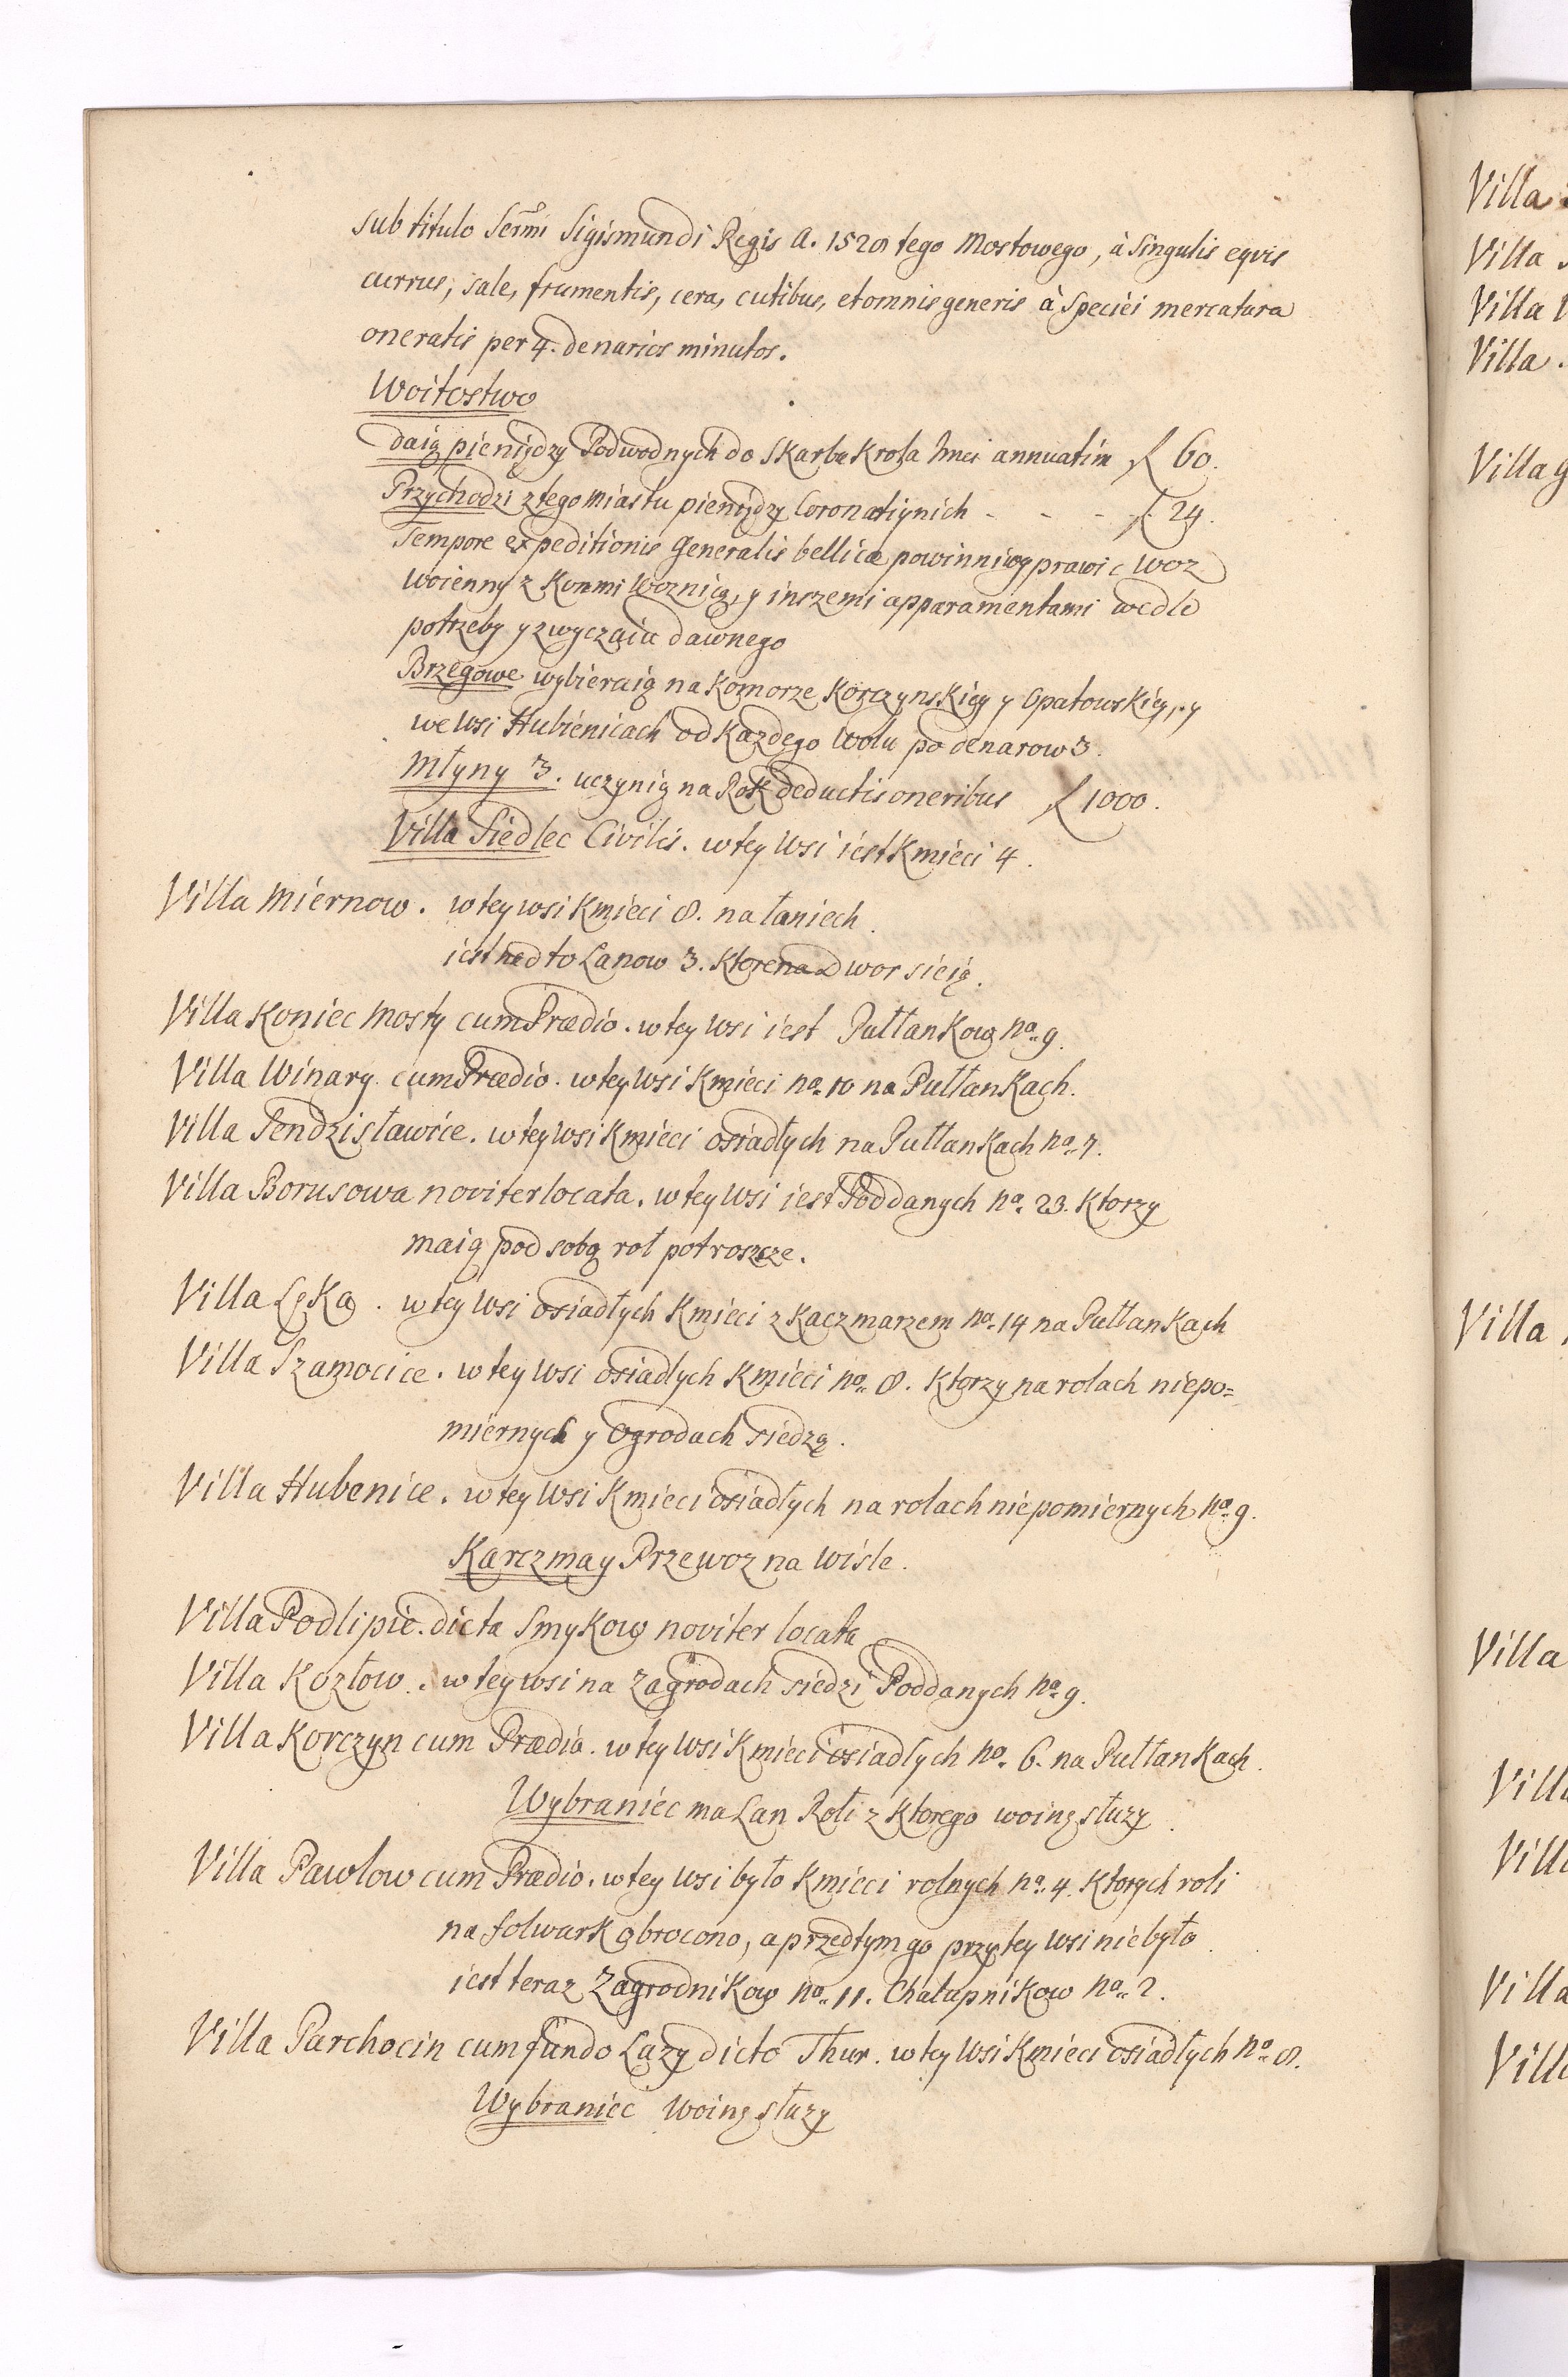 sub titulo Sermi Sigismundi Regis A. 1528 tego Mostowego, à Singulis eqvis
currus, sale, frumentis, cera, cutibus, et omnis generis à Speciei mercatura
oneratis per 4. denarios minutos.
Woitostwo
daią pieniędzy Podwodnych do Skarbu Krola Jmci annuatim f 60.
Przychodzi z tego Miasta pieniędzy Coronatiynich - - - f 24.
Tempore expeditionis Generalis bellicæ powinni wyprawić Woz
Woienny z Konmi Woznicą, y inszemi apparamentami wedle
potrzeby y zwyczaiu dawnego
Brzegowe wybieraią na Komorze Korczynskiey y Opatowskiey, y
we Wsi Hubienicach od Kazdego Wołu po denarow 3.
Młyny 3. uczynią na Rok deductis oneribus f 1000.
Villa Siedlec Civilis. w tey Wsi iest Kmieci 4.
Villa Miernow. w tey wsi Kmieci 8. na łaniech.
iest nadto Lanow 3. Ktore na Dwor sieią.
Villa Koniec Mosty cum Prædio. w tey Wsi iest Pułłankow no. 9.
Villa Winary cum Prædio. w tey Wsi Kmieci no. 10 na Pułłankach.
Villa Pendzisławice. w tey Wsi Kmieci osiadłych na Pułłankach no. 7.
Villa Borusowa noviter locata. w tey Wsi iest Poddanych no. 23. Ktorzy
maią pod sobą rol potroszcze.
Villa Lęka. w tey Wsi osiadłych Kmieci z Kaczmarzem no. 14 na Pułłankach
Villa Szamocice. w tey Wsi osiadłych Kmieci no. 8. Ktorzy na rolach niepo=
miernych y Ogrodach siedzą.
Villa Hubenice. w tey Wsi Kmieci osiadłych na rolach niepomiernych no. 9.
Karczma y Przewoz na Wisle.
Villa Podlipie. dicta Smykow noviter locata
Villa Kozłow. w tey wsi na Zagrodach siedzi Poddanych no. 9.
Villa Korczyn cum Prædio. w tey Wsi Kmieci osiadłych no. 6. na Pułłankach.
Wybraniec ma Lan Roli z Ktorego woinę słuzy.
Villa Pawlow cum Prædio. w tey Wsi było Kmieci rolnych no. 4. Ktorych roli
na folwark obrocono, a przedtym go przy tey Wsi nie było.
iest teraz Zagrodnikow no. 11. Chałupnikow no. 2.
Villa Parchocin cum fundo Lazy dicto Thur. w tey Wsi Kmieci osiadłych no. 8.
Wybraniec Woinę słuzy
Villa
Villa
Villa
Villa
Villa
Villa
Villa
Villa
Villa
Villa
Villa